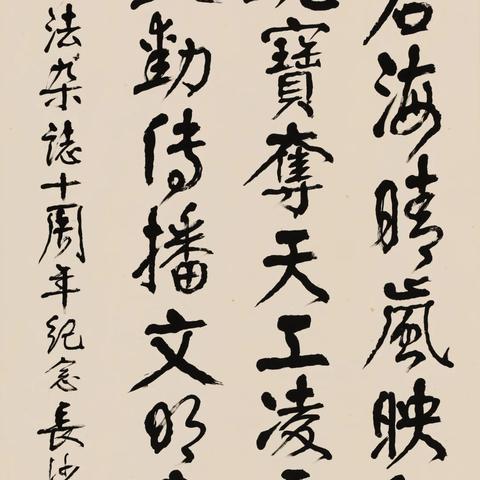 海晴嵐映
寶奪天工凌
勤传播文明
法杂誌十周年紀念長沙